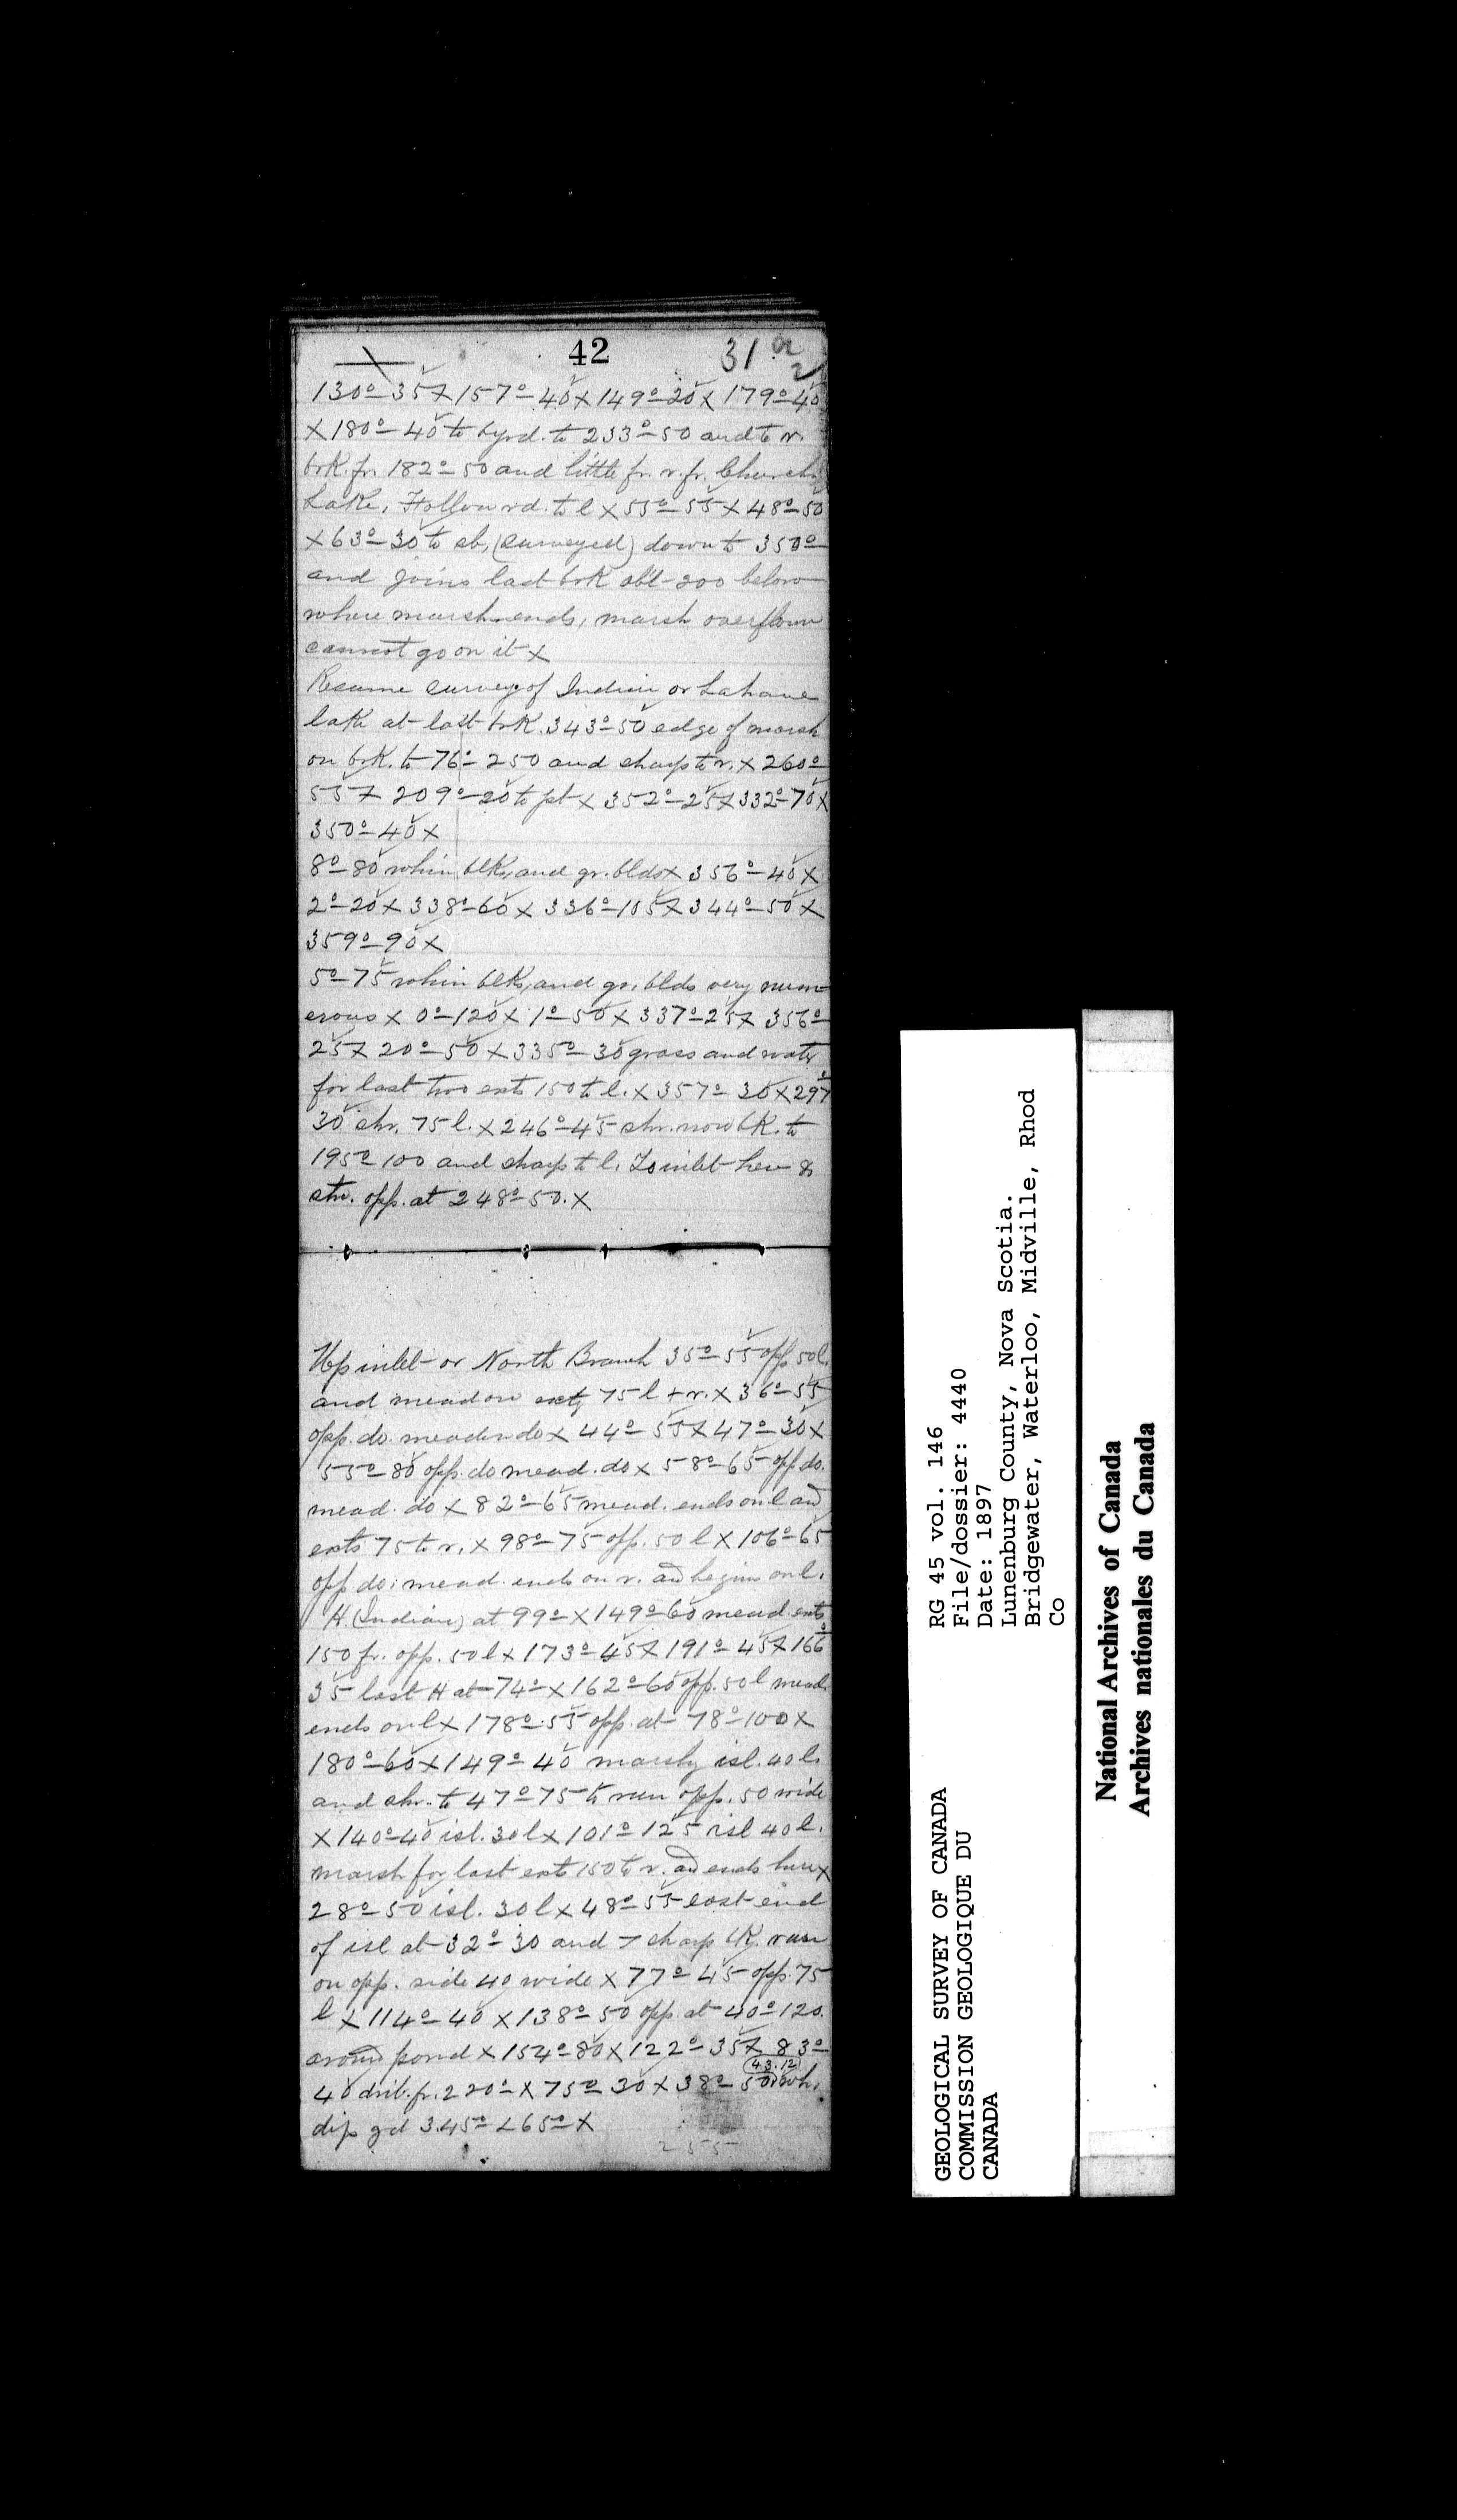 42 31
130°-35 X 157°-40 X 149°-20 X 179°-40
X 180°-40 to byrd. to 233°-50 and to r.
brK. fr. 182°-50 and little fr. r. fr. Church
Lake. Follow rd. to l X 55°-55 X 48°-50
X 63°-30 to sb, (surveyed) down to 350°
and joins last brK abt 200 below
where marsh ends, marsh overflown
cannot go on it X
Resume survey of Indian or Lahave
lake at last brK. 343°-50 edge of marsh
on brK. to 76°-250 and sharp to r. X 260°
55 X 209°-20 to pt X 352°-25 X 332°-70 X
350°-40 X
8°-80 whin blks and gr. blds X 356°-40 X
2°-20 X 338°-60 X 336°-105 X 344°-50 X
359°-90 X
5°-75 whin blks, and gr. blds very num-
erous X 0°-120 X 1°-50 X 337°-25 X 356°
25 X 20°-50 X 335°-30 grass and water
for last two exts 150 to l. X 357°-30 X 297°
30 shr. 75 l. X 246°-45 shr. now bK. to
195°-100 and sharp to l. To inlet here &
shr. opp. at 248°-50. X
Up inlet or North Branch 35°-55 opp. 50 l.
and meadow exts 75 l + r. X 36°-55
opp. do. meadow do X 44°-55 X 47°-30 X
55°-80 opp. do mead. do X 58°-65 opp do.
mead. do X 82°-65 mead. ends on l and
exts 75 to r. X 98°-75 opp. 50 l X 106°-65
opp do; mead. ends on r. and begins on l.
H. (Indian) at 99° X 149°-60 mead. exts
150 fr. opp. 50 l X 173°-45 X 191°-45 X 166°
35 last H at 74° X 162°-60 opp. 50 l mead.
ends on l X 178°-55 opp. at 78°-100 X
180°-60 X 149°-40 marshy isl. 40 l.
and shr. to 47°-75 to run opp. 50 wide
X 140°-40 isl. 30 l X 101°-125 isl 40 l.
marsh for last ext 150 to r. and ends here X
28°-50 isl. 30 l X 48°-55 east end
of isl at 32°-30 and sharp bK. run
on opp. side 40 wide X 77°-45 opp. 75
l X 114°-40 X 138°-50 opp at 40°-120.
around pond X 154°-80 X 122°-35 X 83°
43.12
40 drib. fr. 220° X 75°-30 X 38°-50 wh.
dip gd 345° < 65° X
255
RG 45 vol. 146
File/dossier: 4440
Date: 1897
Lunenburg County, Nova Scotia.
Bridgewater, Waterloo, Midville, Rhod
Co
GEOLOGICAL SURVEY OF CANADA
COMMISSION GEOLOGIQUE DU
CANADA
National Archives of Canada
Archives nationales du Canada